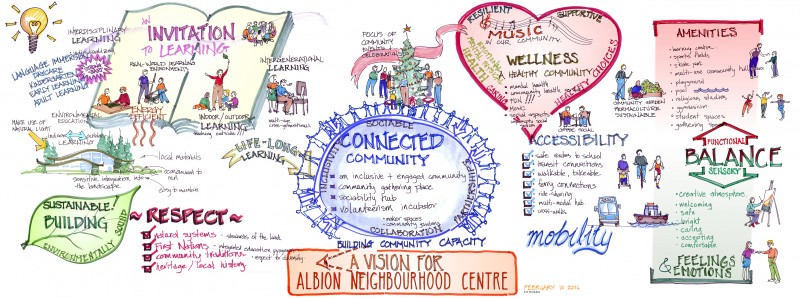 AN
INVITATION
TO LEARNING
INTERDISCIPLINARY
LEARNING
LANGUAGE IMMERSION
DAYCARE
KINDERGARTEN
EARLY LEARNING
ADULT LEARNING
REAL-WORLD LEARNING
ENVIRONMENTS
INTERGENERATIONAL
LEARNING
ENERGY
EFFICIENT
INDOOR/OUTDOOR
LEARNING
LIFE-LONG
LEARNING
MAKE USE OF
NATURAL LIGHT
ENVIRONMENTAL
EDUCATION
local materials
sensitive integration into
the landscape
easy to maintain
SUSTAINABLE!
BUILDING
ENVIRONMENTALLY SOUND
RESPECT
natural systems - stewards of the land
First Nations - integrated education programs
community traditions - respect for diversity
heritage / local history
FOCUS OF
COMMUNITY
EVENTS &
CELEBRATIONS
SOCIABLE
CONNECTED
COMMUNITY
an inclusive + engaged community
community gathering place
sociability hub
volunteerism incubator
- maker spaces
- community building
COLLABORATION
PARTNERSHIPS
BUILDING COMMUNITY CAPACITY
A VISION FOR
ALBION NEIGHBOURHOOD CENTRE
FEBRUARY
RESILIENT
SUPPORTIVE
MUSIC
IN OUR COMMUNITY
WELLNESS
A HEALTHY COMMUNITY
HEALTH
CARING
HEALTHY CHOICES
mental health
community health
FUN!!!
COMMUNITY GARDEN
PERMACULTURE
SUSTAINABLE
ACCESSIBILITY
safe routes to school
transit connections
walkable, bikeable
ferry connections
ride-sharing
multi-modal hub
cross-walks
mobility
AMENITIES
learning centre
sports fields
skate park
multi-use community hub
playground
pool
student spaces
gathering space
FUNCTIONAL
BALANCE
SENSORY
creative atmosphere
welcoming
safe
bright
caring
accepting
comfortable
FEELINGS
& EMOTIONS